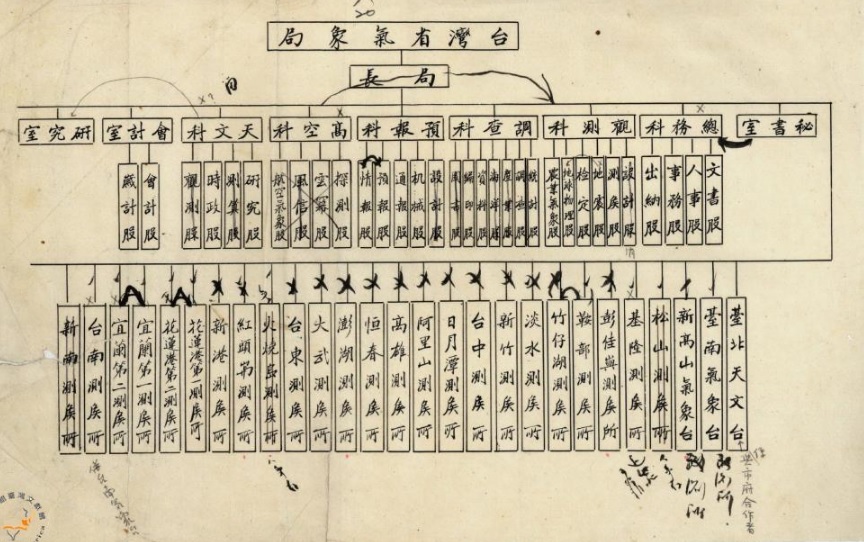 台灣省氣象局
局長
秘書室
總務科
觀測科
調查科
預報科
高空科
天文科
會計室
研究室
文書股
人事股
事務股
出納股
設計股
測候股
地震股
檢定股
地球物理股
農業氣象股
統計股
資料股
編印股
圖書股
設計股
机械股
通報股
預報股
情報股
探測股
雲霧股
風信股
航空氣象股
研究股
測算股
時政股
觀測股
會計股
歲計股
臺北天文台
臺南氣象台
新高山氣象台
松山測候所
基隆測候所
彭佳嶼測候所
鞍部測候所
竹仔湖測候所
淡水測候所
新竹測候所
台中測候所
日月潭測候所
阿里山測候所
高雄測候所
恒春測候所
澎湖測候所
大武測候所
台東測候所
火燒島測候所
紅頭嶼測候所
新港測候所
花蓮港第一測候所
花蓮港第二測候所
宜蘭第一測候所
宜蘭第二測候所
台南測候所
新南測候所
與市府合作者